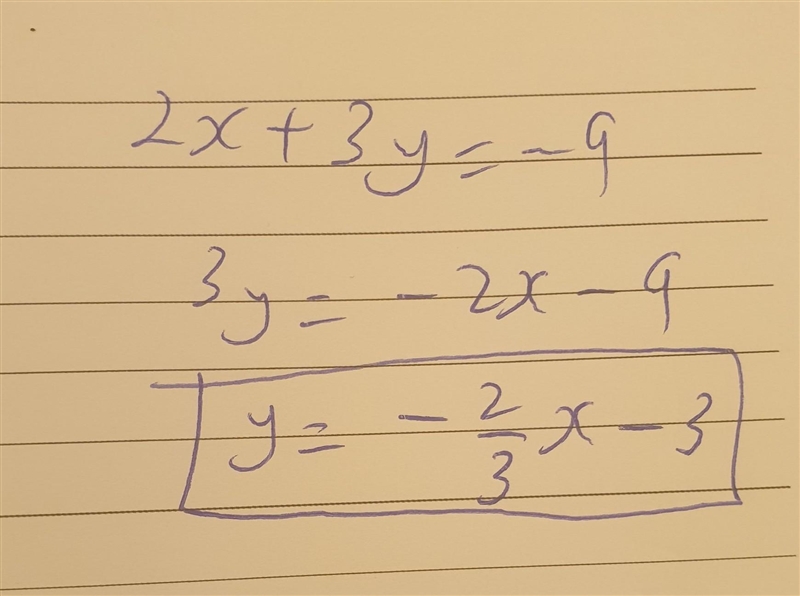 2x + 3y = -9
3y = -2x - 9
y = -2/3 x - 3